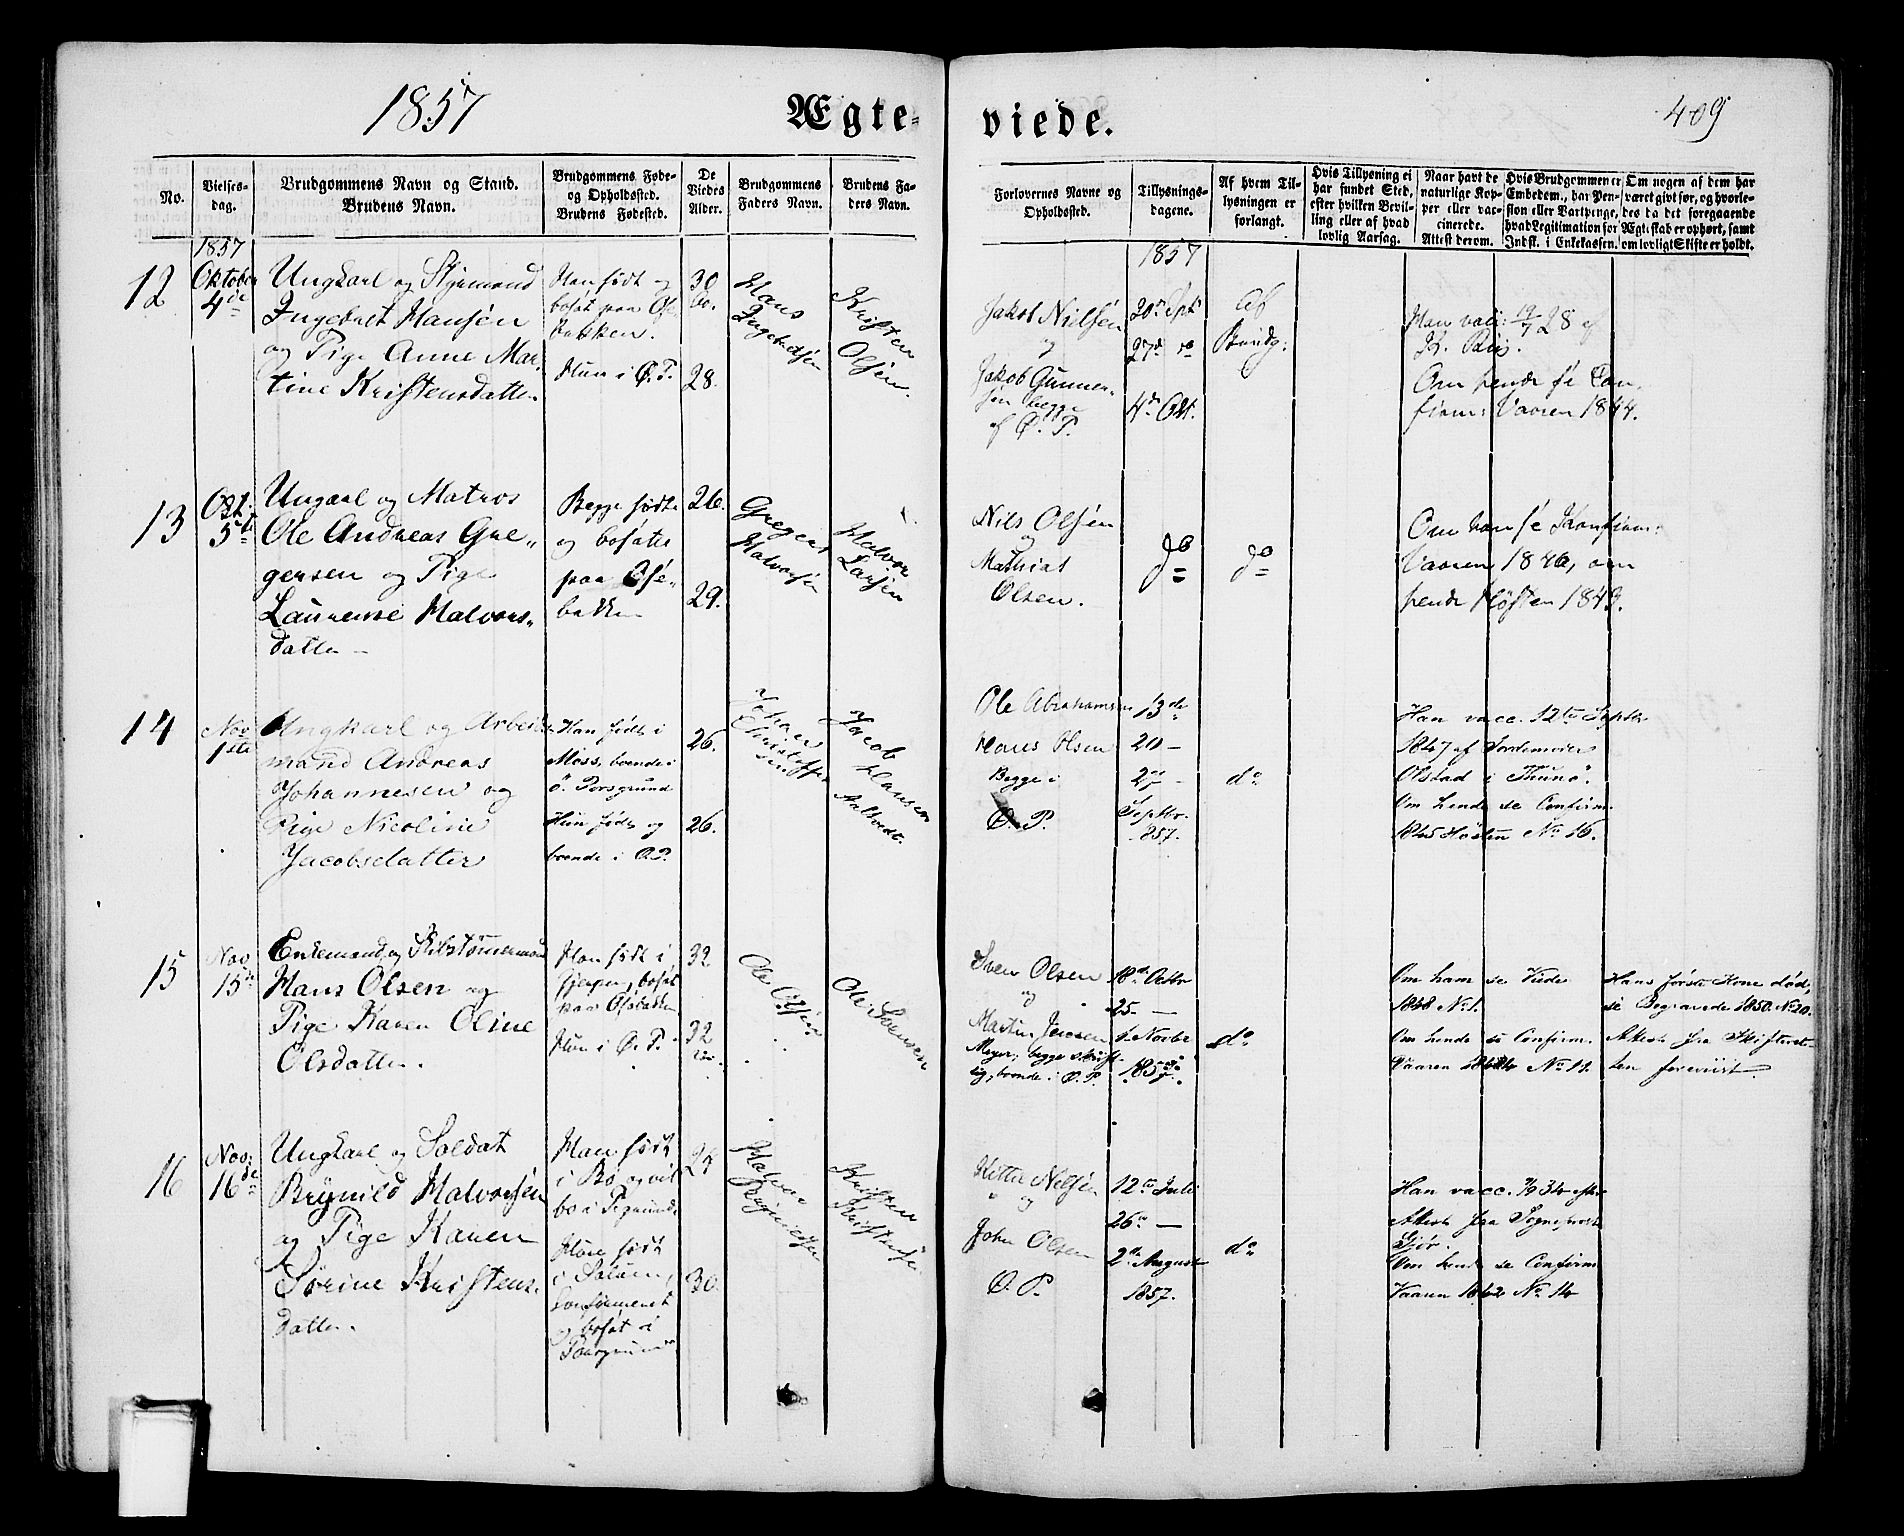 1857
Ægte-
viede.
409
No.
Vielses-
dag.
Brudgommens Navn og Stand.
Brudens Navn.
Brudgommens Føde-
og Opholdssted.
Brudens Fødested.
De
Viedes
Alder.
Brudgommens
Faders Navn.
Brudens Fa-
ders Navn.
Forlovernes Navne og
Opholdssted.
Tillysnings-
dagene.
Af hvem Til-
lysningen er
forlangt.
Hvis Tillysning ei
har fundet Sted,
efter hvilken Bevil-
ling eller af hvad
lovlig Aarsag.
Naar havt de
naturlige Kop-
per eller vac-
cinerede.
Attest derom.
Hvis Brudgommen er
Embedsm., har Pen-
sion eller Vartpenge,
hvad Legitimation for
Indsk. i Enkekassen.
Om nogen af dem har
været givt før, og hvorle-
des da det foregaaende
Ægteskab er ophørt, samt
om lovligt Skifte er holdt.
12
1857
Oktober
4de
Ungkarl og Styrmand
Ingebret Hansen
og Pige Anne Mar-
tine Kristensdatter
Han født og
bosat paa Ose-
bakken.
Hun i Ø. P.
30
28.
Hans
Ingebretsen
Kristen
Olsen.
1857
Jakob Nielsen
og
Jakob Gunner-
sen begge
af Ø. P.
20de Spt.
27de do
4de Okt.
Af
Brudg:
Han vacc: 19/7 28 af
Om hende se Con-
firm: Vaaren 1844.
13
Okt.
5te
Ungkarl og Matros
Ole Andreas Gre-
gersen og Pige
Laurense Halvors-
datter
Begge fødte
og bosatte
paa Ose-
bakken
26.
29.
Gregers
Halvorsen
Halvor
Larsen
Nils Olsen
og
Mathias
Olsen.
do
do
Om ham se Konfirm:
Vaaren 1846, om
hende Høsten 1843.
14
Nov
1ste
Ungkarl og Arbeids-
mand Andreas
Johannesen og
Pige Nicoline
Jacobsdatter
Han født i
Moss, boende i
Ø. Porsgrund
Hun født og
boende i Ø.P.
26.
26.
Johannes
Christoffer-
sen
Jacob
Hansen
Aaltvedt.
Ole Abrahamsen
Hans Olsen
Begge i
Ø. P.
13de
20 —
27 —
Septbr.
1857.
do
Han vacc. 12te Septbr
1847 af Jordemoder
Olstad i Thunø.
Om hende se Confirm.
1845 Høsten No 16.
15
Nov
15de
Enkemand og Skibstømmermand
Hans Olsen og
Pige Karen Oline
Olsdatter.
Han født i
Gjerpen, bosat
paa Osebakken
Hun i Ø. P.
32
32
Ole Olsen
Ole Svensen
Sven Olsen
og
Martin Jensen
Meyer, begge skrift-
lig, boende i Ø. P.
18de Octbr
25 —
1 Novbr
1857.
do
Om ham se Viede
1848 No 1.
Om hende se Confirm.
Vaaren 1844 No 11.
Hans første Kone død,
se Begravede 1850. No 20.
Attest fra Skifteret-
ten foreviist.
16
Nov.
16de
Ungkarl og Soldat
Brynild Halvorsen
og Pige Karen
Sørine Kristens-
datter.
Han født
i Bø og vil
bo i Porsgrund
Hun født
i Solum,
confirmeret
og bosat i
Porsgrund
24
30.
Halvor
Brynildsen
Kristen
Kristensen
Kittil Nilsen
og
John Olsen
Ø. P.
12te Juli
26de —
2den August
1857.
do
Han vacc. 7/9 34 efter
Attest fra Sogneprest
Gjør.
Om hende se Confirm
Vaaren 1842 No 14